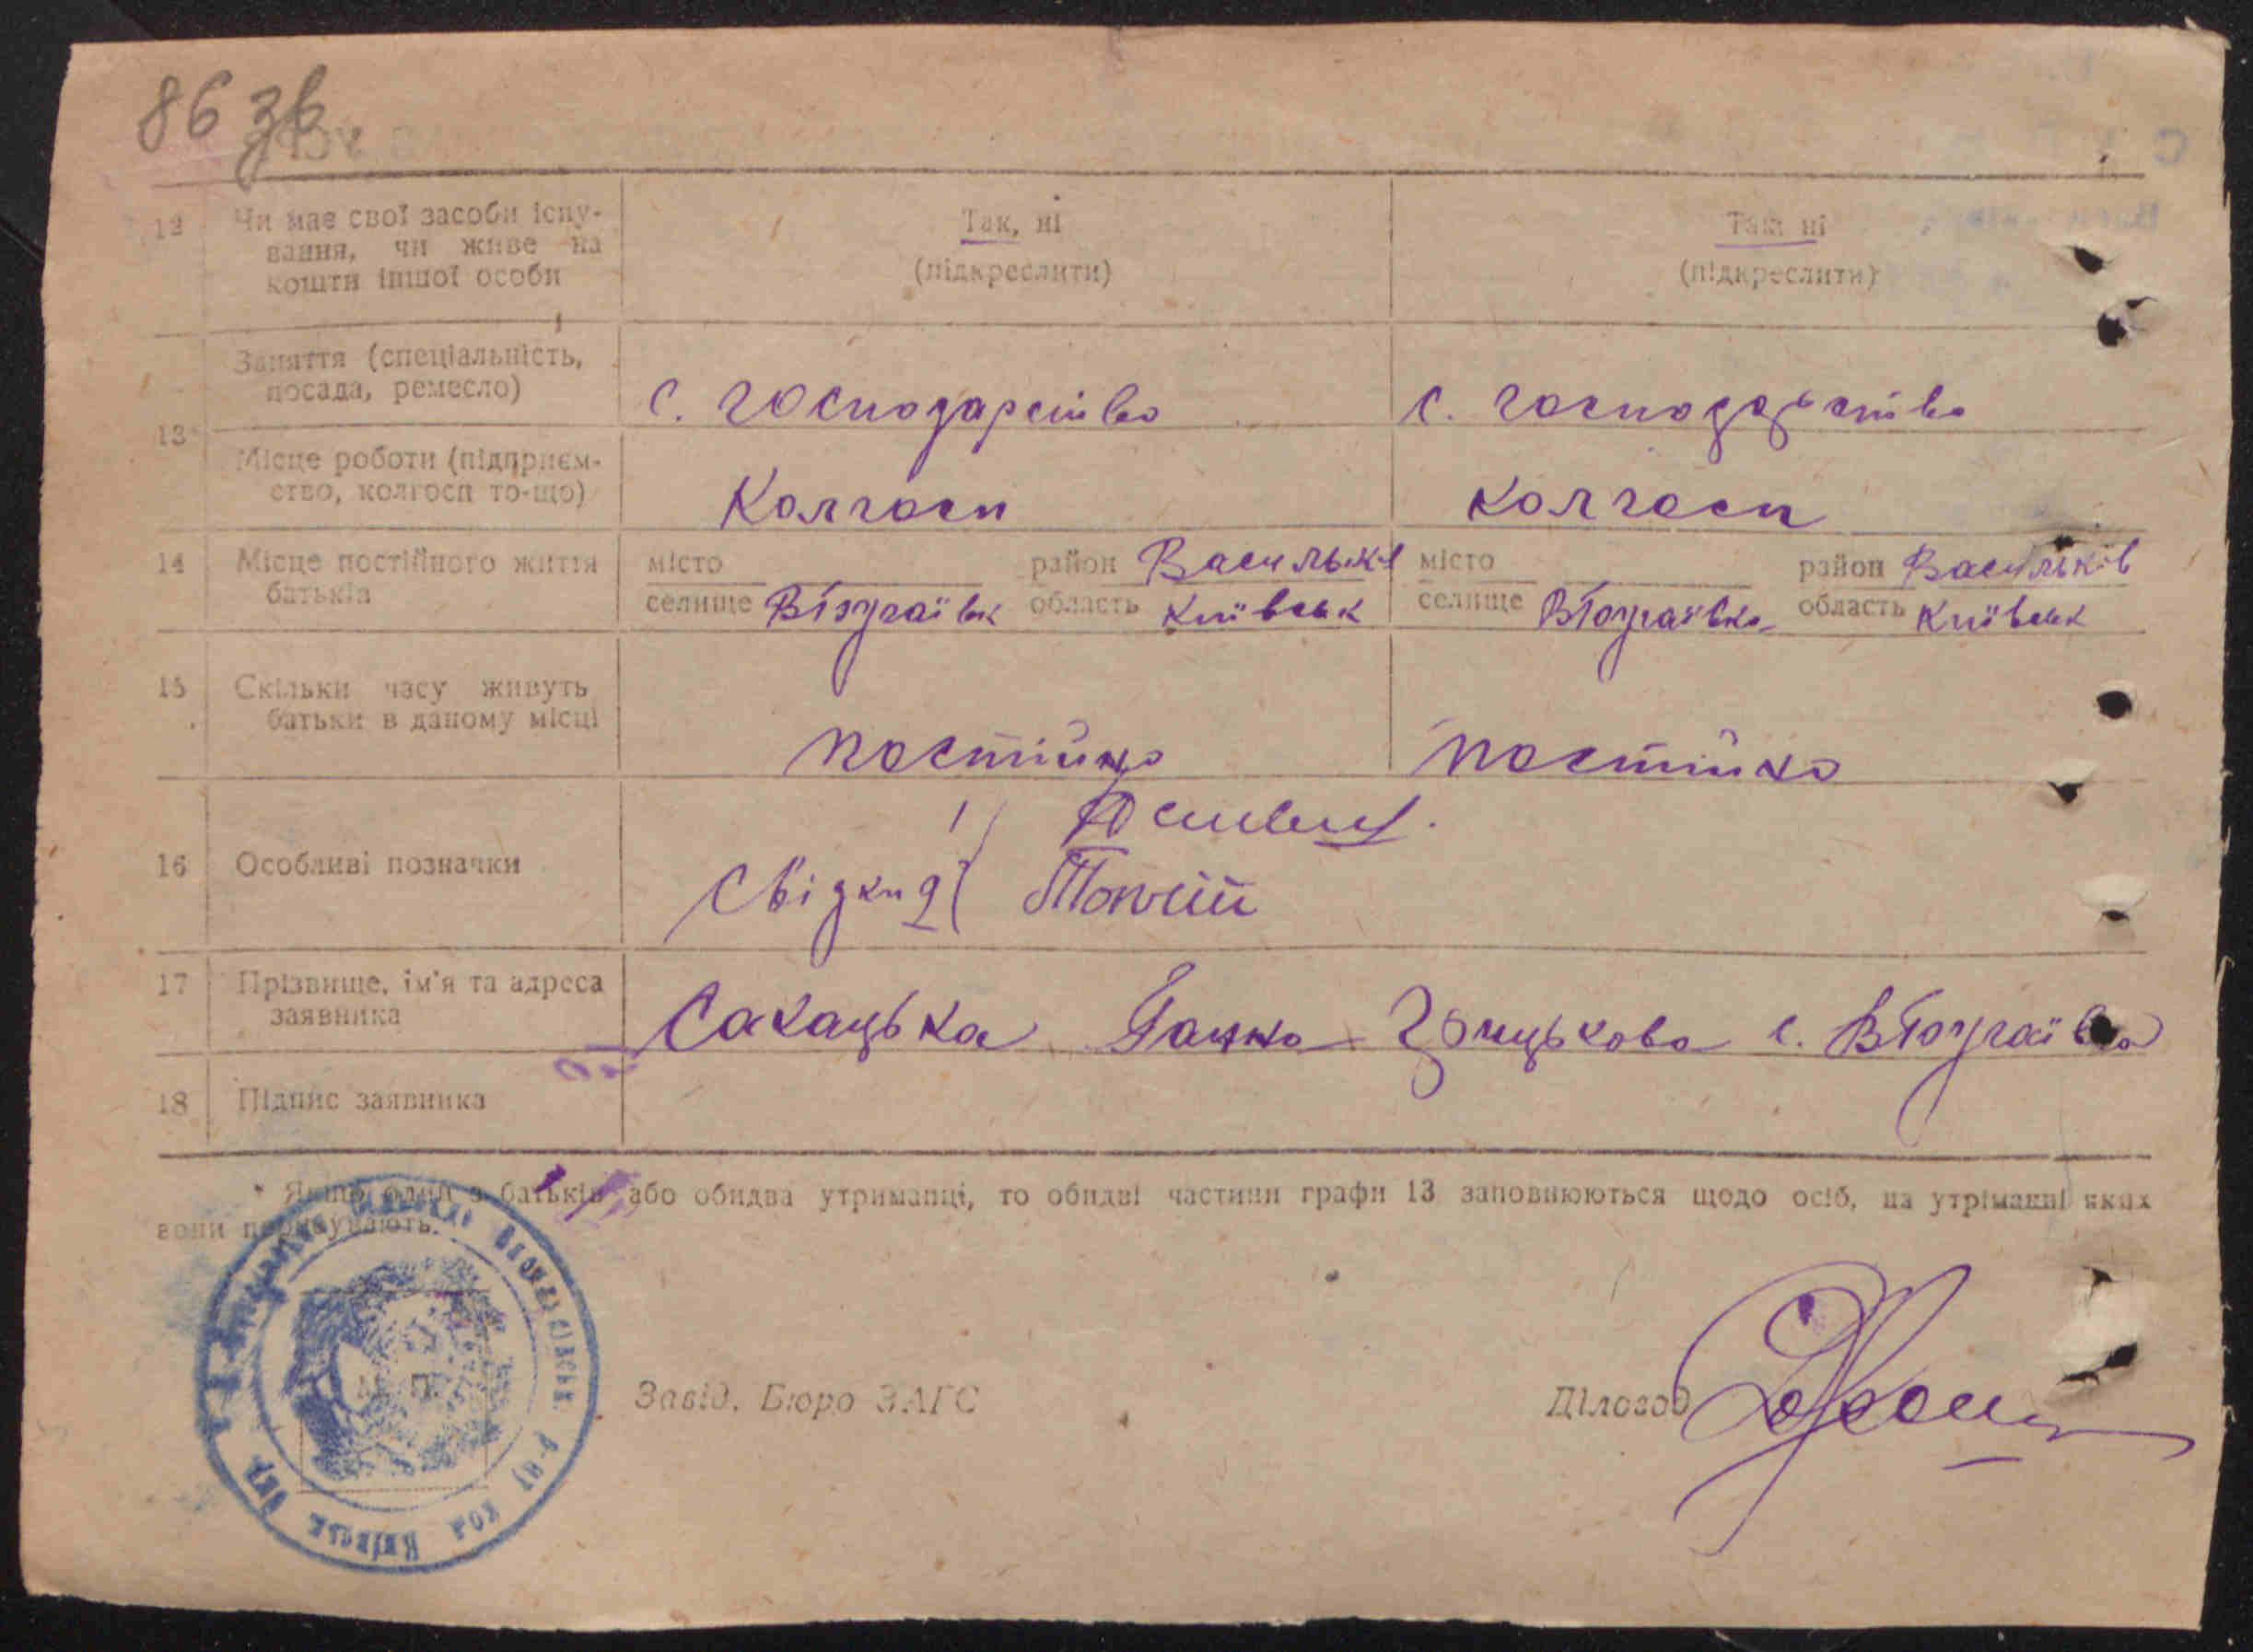 86 зв
12 Чи має свої засоби існу- Так, ні Так, ні
вання, чи живе на (підкреслити) (підкреслити)
кошти іншої особи
Заняття (спеціальність, с. господарство с. господарство
посада, ремесло)
13*
Місце роботи (підприєм- Колгосп Колгосп
ство, колгосп то-що)
14 Місце постійного життя місто район Васильків місто район Васильків
батьків селище область Київськ селище область Київськ
15 Скільки часу живуть постійно постійно
батьки в даному місці
1)
16 Особливі позначки Свідки 2)
17 Прізвище, ім'я та адреса Сакацька Ганна с.
заявника
18 Підпис заявника
* Якщо один з батьків або обидва утриманці, то обидві частини графи 13 заповнюються щодо осіб, на утріманні яких
вони перебувають.
М. П.
Завід. Бюро ЗАГС Діловод